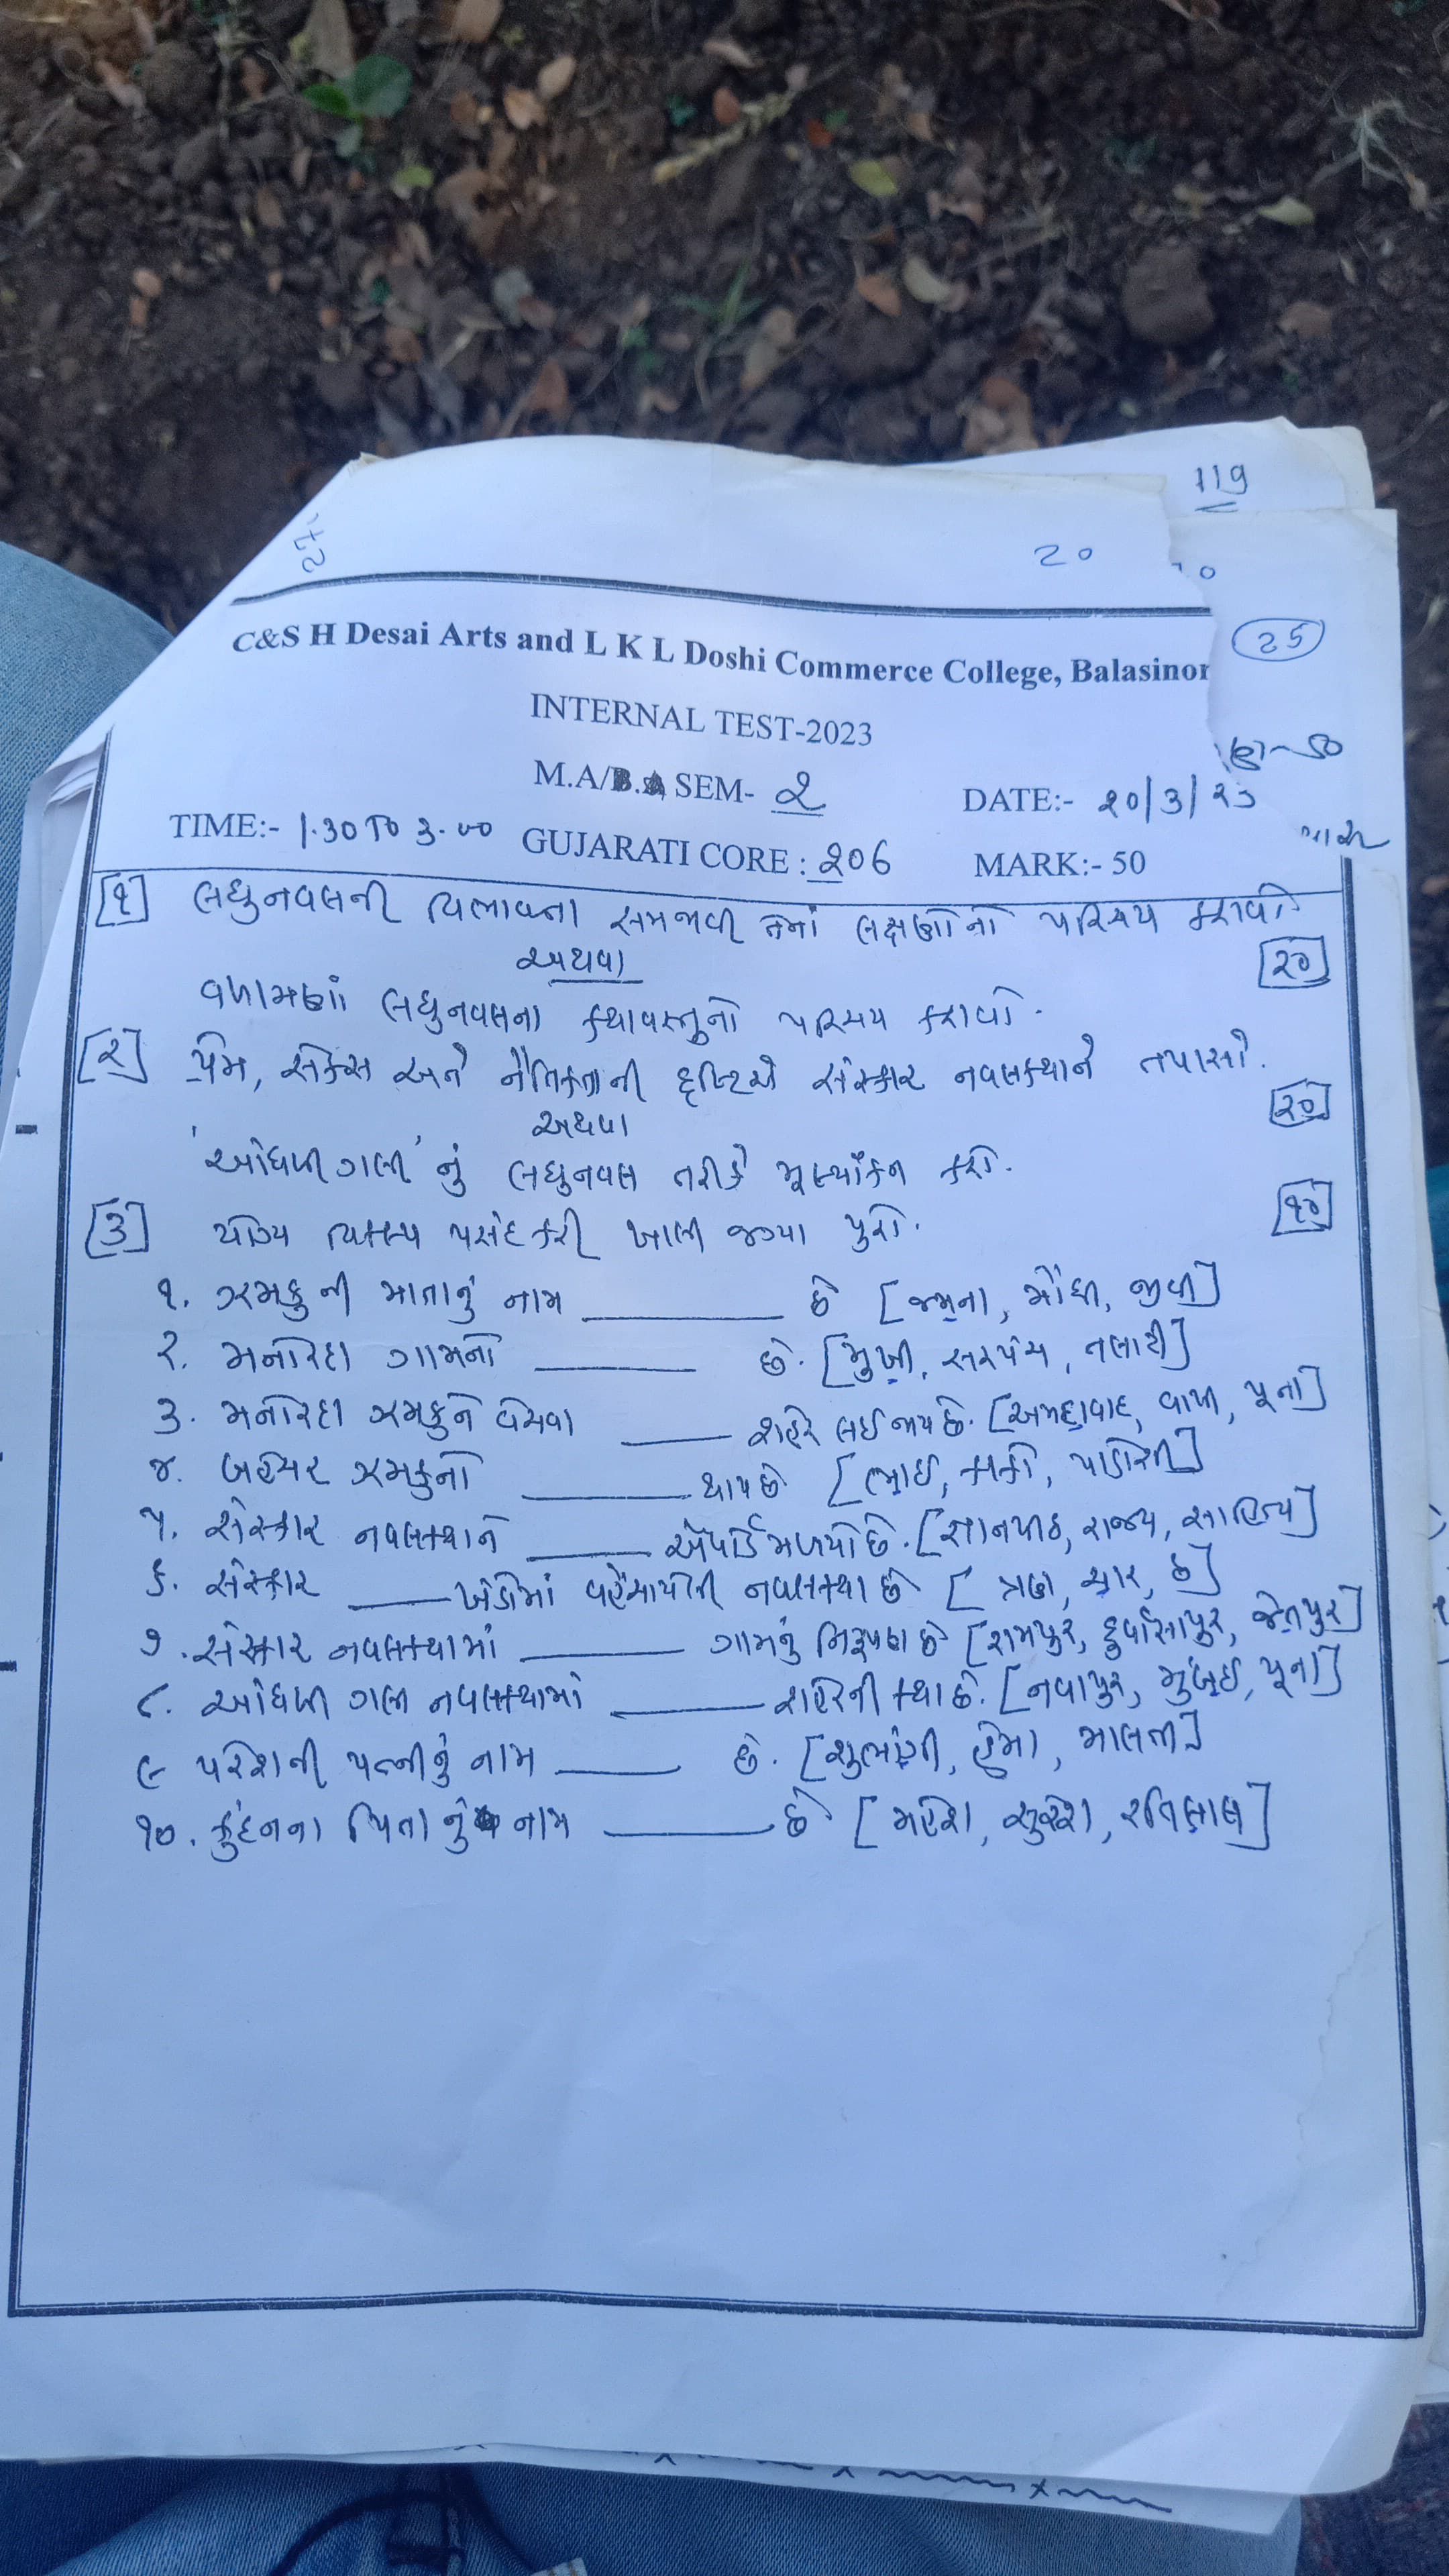 119
20
25
C&S H Desai Arts and L K L Doshi Commerce College, Balasinor
INTERNAL TEST-2023
M.A/B.A SEM- 2
DATE:- 20/3/23
TIME:- 1.30 TO 3.00 GUJARATI CORE : 206 MARK:- 50
[૧] લઘુનવલની વિભાવના સમજાવી તેમાં લક્ષણોનો પરિચય કરાવો
અથવા [૨૦]
વળામણાં લઘુનવલના કથાવસ્તુનો પરિચય કરાવો.
[૨] પ્રેમ, સેક્સ અને નૈતિકતાની દૃષ્ટિએ સંસ્કાર નવલકથાને તપાસો.
અથવા [૨૦]
'આંધળી ગલી' નું લઘુનવલ તરીકે મૂલ્યાંકન કરો.
[૩] યોગ્ય વિકલ્પ પસંદ કરી ખાલી જગ્યા પુરો. [૧૦]
૧. ઝમકુ ની માતાનું નામ ______ છે [જમના, મોંઘી, જીવી]
૨. મનોરદા ગામનો ______ છે. [મુખી, સરપંચ, તલાટી]
૩. મનોરદા ઝમકુને વેચવા ______ શહેર લઈ જાય છે. [અમદાવાદ, વાપી, પૂના]
૪. બહેચર ઝમકુનો ______ થાય છે [ભાઈ, કાકો, પાડોશી]
૫. સંસ્કાર નવલકથાને ______ એવોર્ડ મળ્યો છે. [જ્ઞાનપીઠ, રાજ્ય, સાહિત્ય]
૬. સંસ્કાર ______ ખંડોમાં વહેંચાયેલી નવલકથા છે [ત્રણ, ચાર, છ]
૭. સંસ્કાર નવલકથામાં ______ ગામનું નિરૂપણ છે [રામપુર, દુર્વાસાપુર, જેતપુર]
૮. આંધળી ગલી નવલકથામાં ______ શહેરની કથા છે. [નવાપુર, મુંબઈ, પૂના]
૯ પરેશની પત્નીનું નામ ______ છે. [શુભાંગી, હેમા, માલતી]
૧૦. કુંદનના પિતા નું નામ ______ છે [મહેશ, સુરેશ, રતિલાલ]